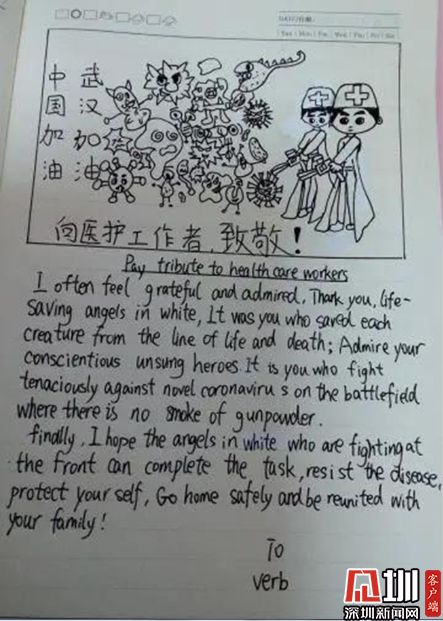 DATE/日期:
Sun Mon Tue Wed Thu Fri Sat
武汉加油
中国加油
向医护工作者,致敬!
Pay tribute to health care workers
I often feel grateful and admired, Thank you, life-
saving angels in white, It was you who saved each
creature from the line of life and death; Admire your
conscientious unsung heroes. It is you who fight
tenaciously against novel coronaviru s on the battlefield
where there is no smoke of gunpowder.
findlly, I hope the angels in white who are fighting at
the front can complete the task, resist the disease,
protect your self, Go home safely and be reunited with
your family!
To
verb
圳
深圳新闻网
客户端